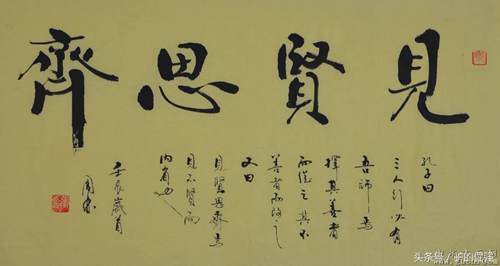 見賢思齊
孔子曰
三人行必有
吾師焉
擇其善者
而從之其不
善者而改之
又曰
見賢思齊焉
見不賢而
內省也
壬辰歲首
头条号